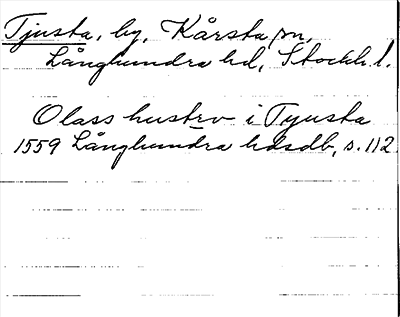 Tjusta, by, Kårsta sn,
Långhundra hd, Stockh. l.
Olass hustrv i Tyusta
1559 Långhundra hdsdb, s. 112